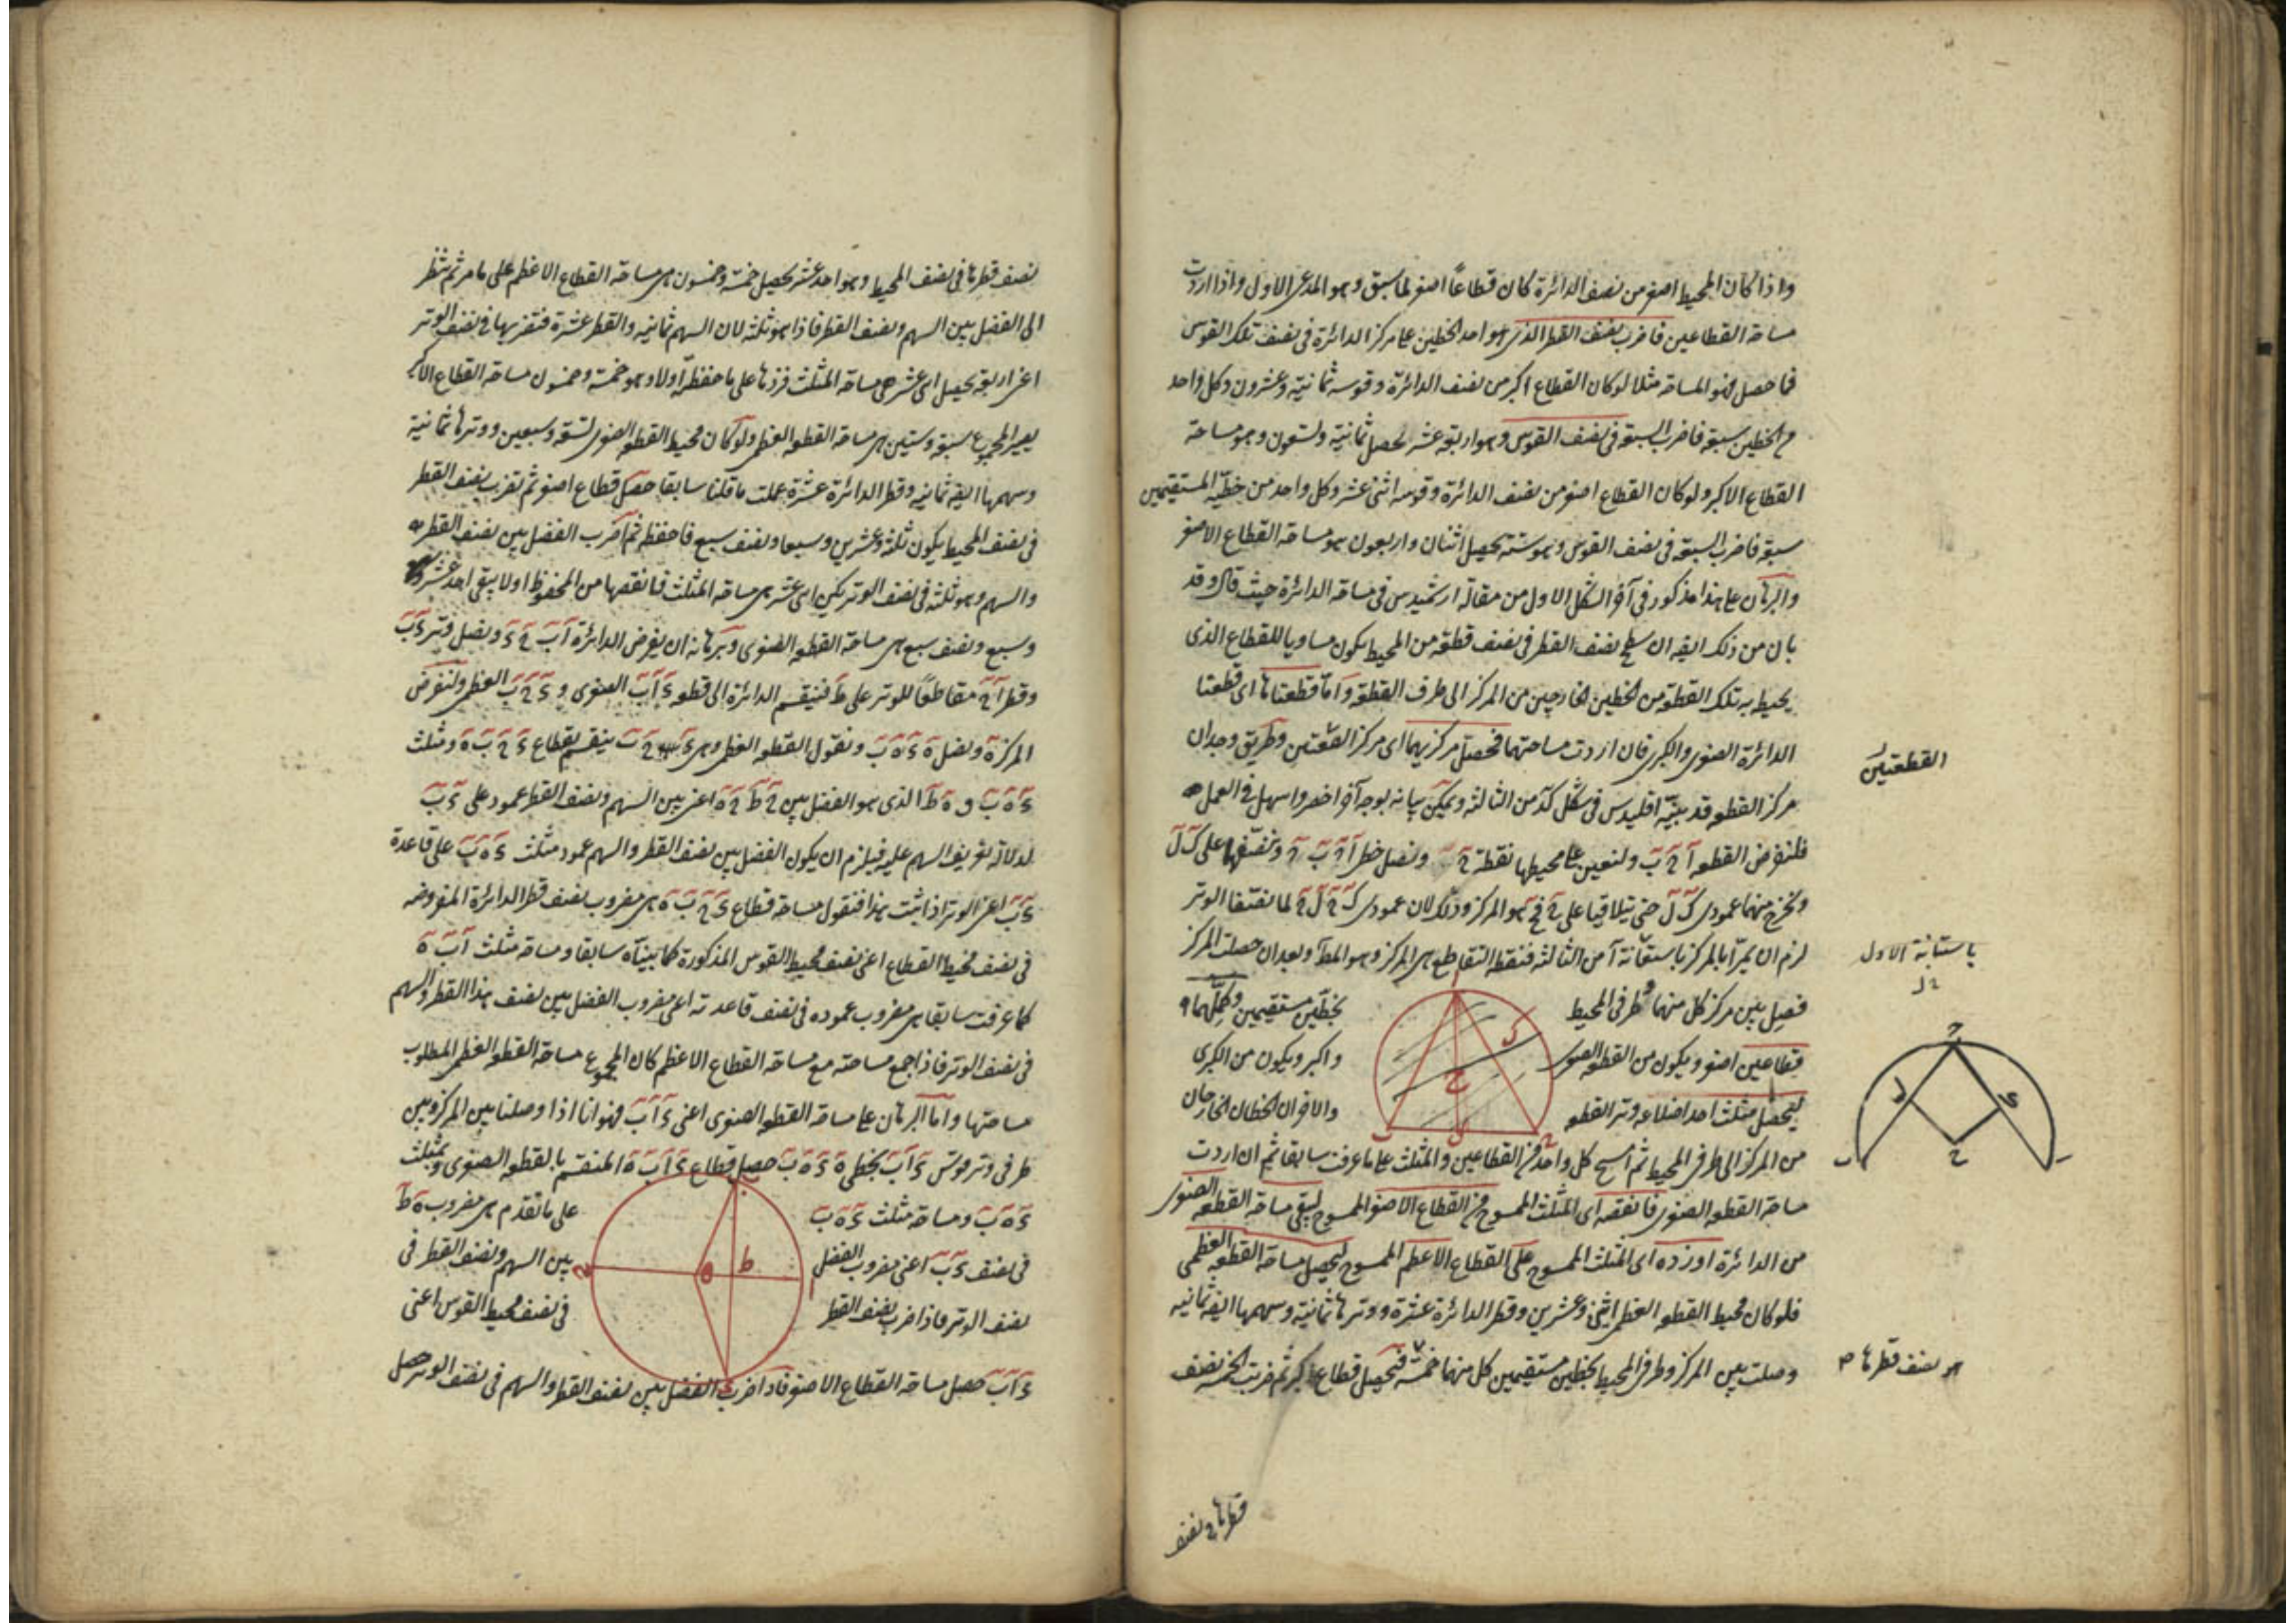 واذا كان المحيط اصغر من نصف الدائرة كان قطاعاً اصغر لما سبق وهو المدعى الاول واذا اردت
مساحة القطاعين فاضرب نصف القطر الذى هو احد الخطين على مركز الدائرة فى نصف تلك القوس
فما حصل فهو المساحة مثلا لو كان القطاع اكبر من نصف الدائرة وقوسه ثمانية وعشرون وكل واحد
من الخطين سبعة فاضرب السبعة فى نصف القوس وهو اربعة عشر يحصل ثمانية وتسعون وهو مساحة
القطاع الاكبر ولو كان القطاع اصغر من نصف الدائرة وقوسه اثنى عشر وكل واحد من خطيه المستقيمين
سبعة فاضرب السبعة فى نصف القوس وهو ستة يحصل اثنان واربعون هو مساحة القطاع الاصغر
والبرهان على هذا مذكور فى آخر الشكل الاول من مقالة ارشميدس فى مساحة الدائرة حيث قال وقد
بان من ذلك ايضا ان سطح نصف القطر فى نصف قطعة من المحيط يكون مساويا للقطاع الذى
يحيط به تلك القطعة من الخطين الخارجين من المركز الى طرفى القطعة واما قطعتاها اى قطعتا
الدائرة الصغرى والكبرى فان اردت مساحتهما فحصل مركزيهما اى مركز القطعتين وطريق وجدان
القطعتين
مركز القطعة قد بينه اقليدس فى شكل كد من الثالثة ويمكن بيانه بوجه آخر اخصر واسهل فى العمل
فلنفرض القطعة آ ح ب ولنعين على محيطها نقطة ح ونصل خطى آ ح ب ح وننصفهما على ك ل
ونخرج منهما عمودى ك ل حتى يتلاقيا على ح فح هو المركز وذلك لان عمودى ك ح ل ح لما نصفا الوتر
لزم ان يمرا بالمركز باستبانة آ من الثالثة فنقطة التقاطع هى المركز وهو المط وبعد ان حصلت المركز
باستبانة الاول
فصل بين مركز كل منهما وطرفى المحيط
بخطين مستقيمين وكملهما
قطاعين اصغر ويكون من القطعة الصغرى
واكبر ويكون من الكبرى
ليحصل مثلث احد اضلاعه وتر القطعة
والاخران الخطان الخارجان
من المركز الى طرفى المحيط ثم امسح كل واحد من القطاعين والمثلث على ما عرفت سابقا ثم ان اردت
مساحة القطعة الصغرى فانقصه اى المثلث الممسوح من القطاع الاصغر الممسوح ليبقى مساحة القطعة الصغرى
من الدائرة او زده اى المثلث الممسوح على القطاع الاعظم الممسوح ليحصل مساحة القطعة العظمى
فلو كان محيط القطعة العظمى اثنى وعشرين وقطر الدائرة عشرة ووترها ثمانية وسهمها ايضا ثمانية
وصلت بين المركز وطرفى المحيط بخطين مستقيمين كل منهما خمسة فيحصل قطاع اكبر ثم ضربت الخمسة نصف
هو نصف قطرها
قطرها فى نصف
نصف قطرها فى نصف المحيط وهو احد عشر يحصل خمسة وخمسون هى مساحة القطاع الاعظم على ما مر ثم تنظر
الى الفضل بين السهم ونصف القطر فاذا هو ثلثة لان السهم ثمانية والقطر عشرة فتضربها فى نصف الوتر
اعنى اربعة يحصل اثنى عشر هى مساحة المثلث فزدها على ما حفظته اولا وهو خمسة وخمسون مساحة القطاع الاكبر
يصير المجموع سبعة وستين هى مساحة القطعة العظمى ولو كان محيط القطعة الصغرى تسعة وسبعين ووترها ثمانية
وسهمها ايضا ثمانية وقطر الدائرة عشرة عملت ما قلنا سابقا حصل قطاع اصغر ثم تضرب نصف القطر
فى نصف المحيط يكون ثلثة وعشرين وسبعا ونصف سبع فاحفظه ثم اضرب الفضل بين نصف القطر
والسهم وهو ثلثة فى نصف الوتر يكن اثنى عشر هى مساحة المثلث فانقصها من المحفوظ اولا يبقى احد عشر
وسبع ونصف سبع هى مساحة القطعة الصغرى وبرهانه ان يفرض الدائرة آ ب ح ء ونصل وتر ء ب
وقطر آ ح مقاطعاً للوتر على ط فينقسم الدائرة الى قطعة ء آ ب الصغرى و ء ح ب العظمى ولنفرض
المركز ه ونصل ه ء ه ب ونقول القطعة العظمى وهى ء ح ب ينقسم بقطاع ء ح ب ه ومثلث
ء ه ب و ه ط الذى هو الفضل بين ح ط ح ه اعنى بين السهم ونصف القطر عمود على ء ب
لدلالة تعريف السهم عليه فيلزم ان يكون الفضل بين نصف القطر والسهم عمود مثلث ء ه ب على قاعدة
ء ب اعنى الوتر اذا ثبت هذا فنقول مساحة قطاع ء ح ب ه هى مضروب نصف قطر الدائرة المفروضة
فى نصف محيط القطاع اعنى نصف محيط القوس المذكورة كما بيناه سابقا ومساحة مثلث آ ب ه
كما عرفت سابقا هى مضروب عموده فى نصف قاعدته اعنى مضروب الفضل بين نصف هذا القطر والسهم
فى نصف الوتر فاذا جمع مساحته مع مساحة القطاع الاعظم كان المجموع مساحة القطعة العظمى المطلوب
مساحتها واما البرهان على مساحة القطعة الصغرى اعنى ء آ ب فهو انا اذا وصلنا بين المركز وبين
طرفى وتر قوس ء آ ب بخطى ه ء ه ب حصل قطاع ء آ ب ه المنقسم بالقطعة الصغرى وبمثلث
ء ه ب ومساحة مثلث ء ه ب
على ما تقدم هى مضروب ه ط
فى نصف ء ب اعنى مضروب الفضل
بين السهم ونصف القطر فى
نصف الوتر فاذا ضرب نصف القطر
فى نصف محيط القوس اعنى
ء آ ب حصل مساحة القطاع الاصغر فاذا ضرب الفضل بين نصف القطر والسهم فى نصف الوتر حصل